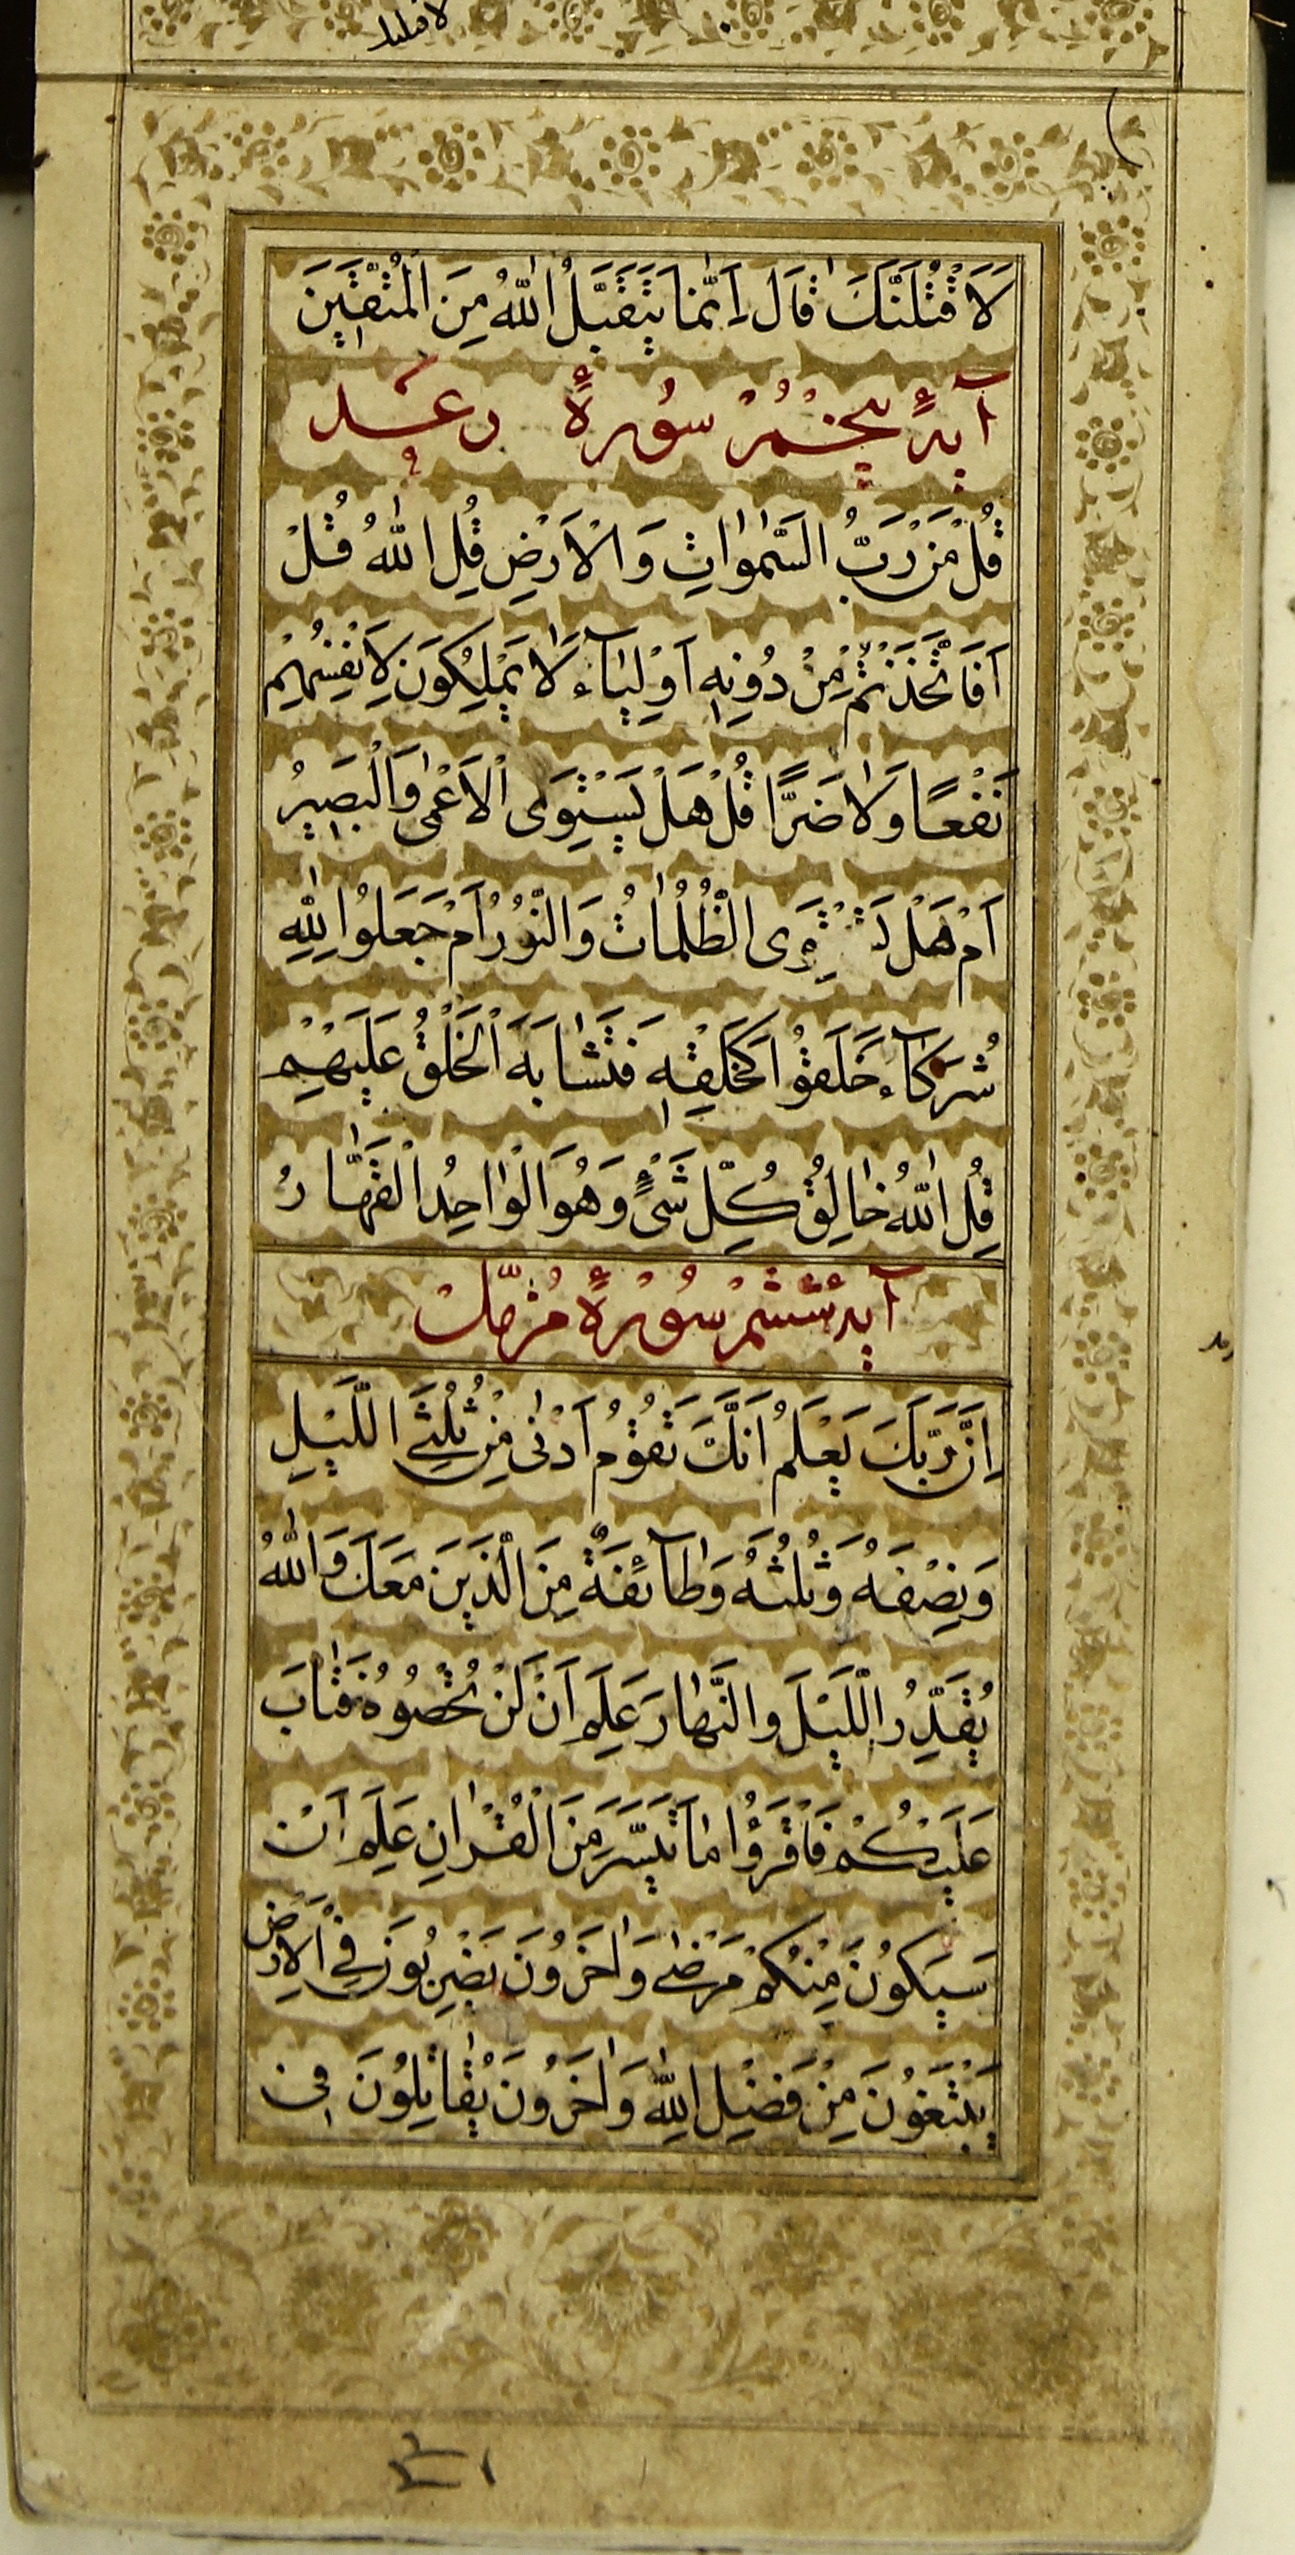 لَاَقْتُلَنَّكَ قَالَ اِنَّمٰا يَتَقَبَّلُ اللّٰهُ مِنَ الْمُتَّقٖينَ
آيهٔ پنجم سُورهٔ رعد
قُلْ مَنْ رَبُّ السَّمٰوٰاتِ وَالْاَرْضِ قُلِ اللّٰهُ قُلْ
اَفَاتَّخَذْتُمْ مِنْ دُونِهٖ اَوْلِيٰآءَ لٰا يَمْلِكُونَ لِاَنْفُسِهِمْ
نَفْعًا وَلٰا ضَرًّا قُلْ هَلْ يَسْتَوِى الْاَعْمٰى وَالْبَصٖيرُ
اَمْ هَلْ تَسْتَوِى الظُّلُمٰاتُ وَالنُّورُ اَمْ جَعَلُوا لِلّٰهِ
شُرَكٰآءَ خَلَقُوا كَخَلْقِهٖ فَتَشٰابَهَ الْخَلْقُ عَلَيْهِمْ
قُلِ اللّٰهُ خٰالِقُ كُلِّ شَىْءٍ وَهُوَ الْوٰاحِدُ الْقَهّٰارُ
آيهٔ ششم سُورهٔ مزّمّل
اِنَّ رَبَّكَ يَعْلَمُ اَنَّكَ تَقُومُ اَدْنٰى مِنْ ثُلُثَىِ اللَّيْلِ
وَنِصْفَهُ وَثُلُثَهُ وَطٰآئِفَةٌ مِنَ الَّذٖينَ مَعَكَ وَاللّٰهُ
يُقَدِّرُ اللَّيْلَ وَالنَّهٰارَ عَلِمَ اَنْ لَنْ تُحْصُوهُ فَتٰابَ
عَلَيْكُمْ فَاقْرَؤُا مٰا تَيَسَّرَ مِنَ الْقُرْاٰنِ عَلِمَ اَنْ
سَيَكُونُ مِنْكُمْ مَرْضٰى وَاٰخَرُونَ يَضْرِبُونَ فِى الْاَرْضِ
يَبْتَغُونَ مِنْ فَضْلِ اللّٰهِ وَاٰخَرُونَ يُقٰاتِلُونَ فٖى